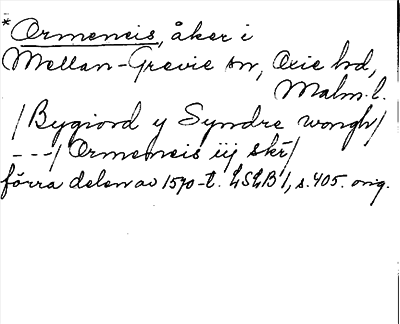 *Ormeneis, åker i
Mellan-Grevie sn, Oxie hd,
Malm. l.
/Bygiord y Syndre wongh/
---/Ormemeis iij skr/
förra delen av 1570-t. LSLB 1, s. 405. orig.